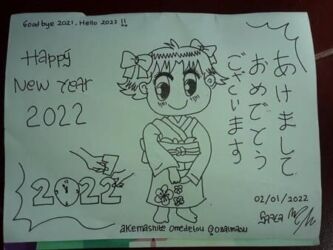 Goodbye 2021, Hello 2022 !!
Happy
New Year
2022
あけまして
おめでとう
ございます
2022
02/01/2022
akemashite omedetou gozaimasu